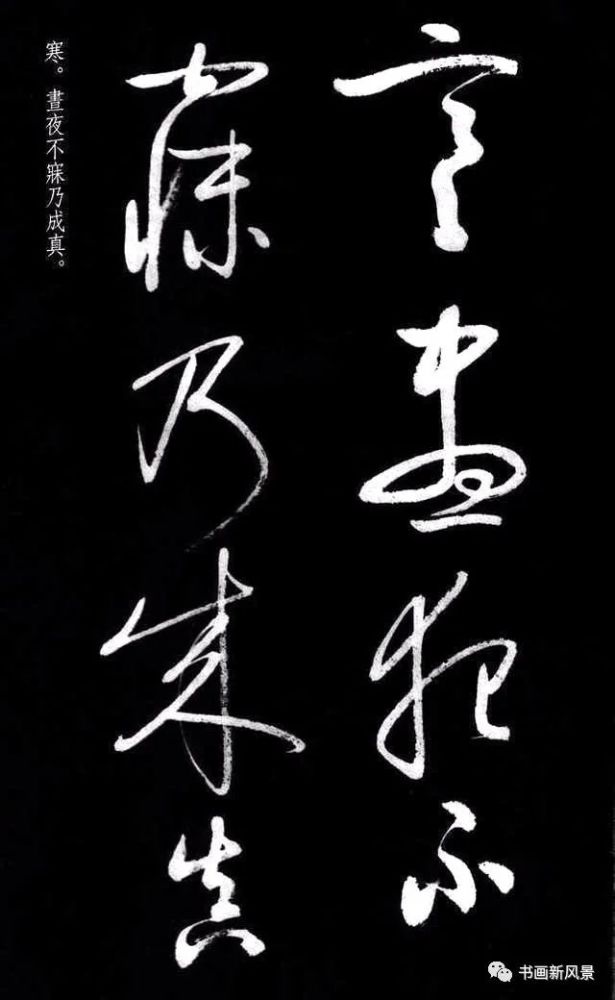 寒晝夜不
寐乃成真
寒。晝夜不寐乃成真。
书画新风景